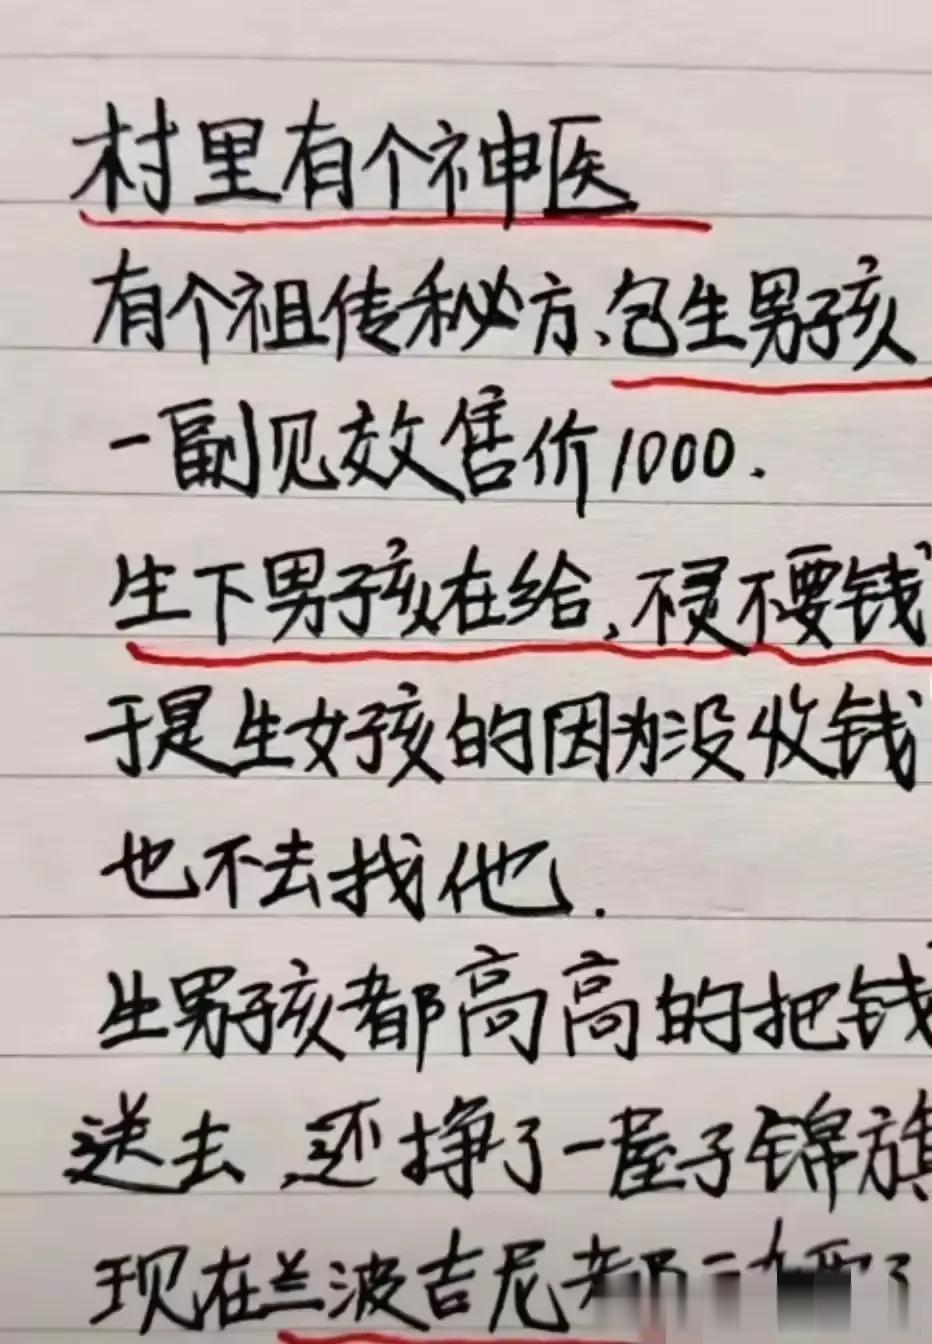 村里有个神医
有个祖传秘方、包生男孩
一副见效售价1000.
生下男孩在给,不灵不要钱
于是生女孩的因为没收钱
也不去找他.
生男孩都高高的把钱
送去,还挣了一屋子锦旗
现在兰波吉尼都